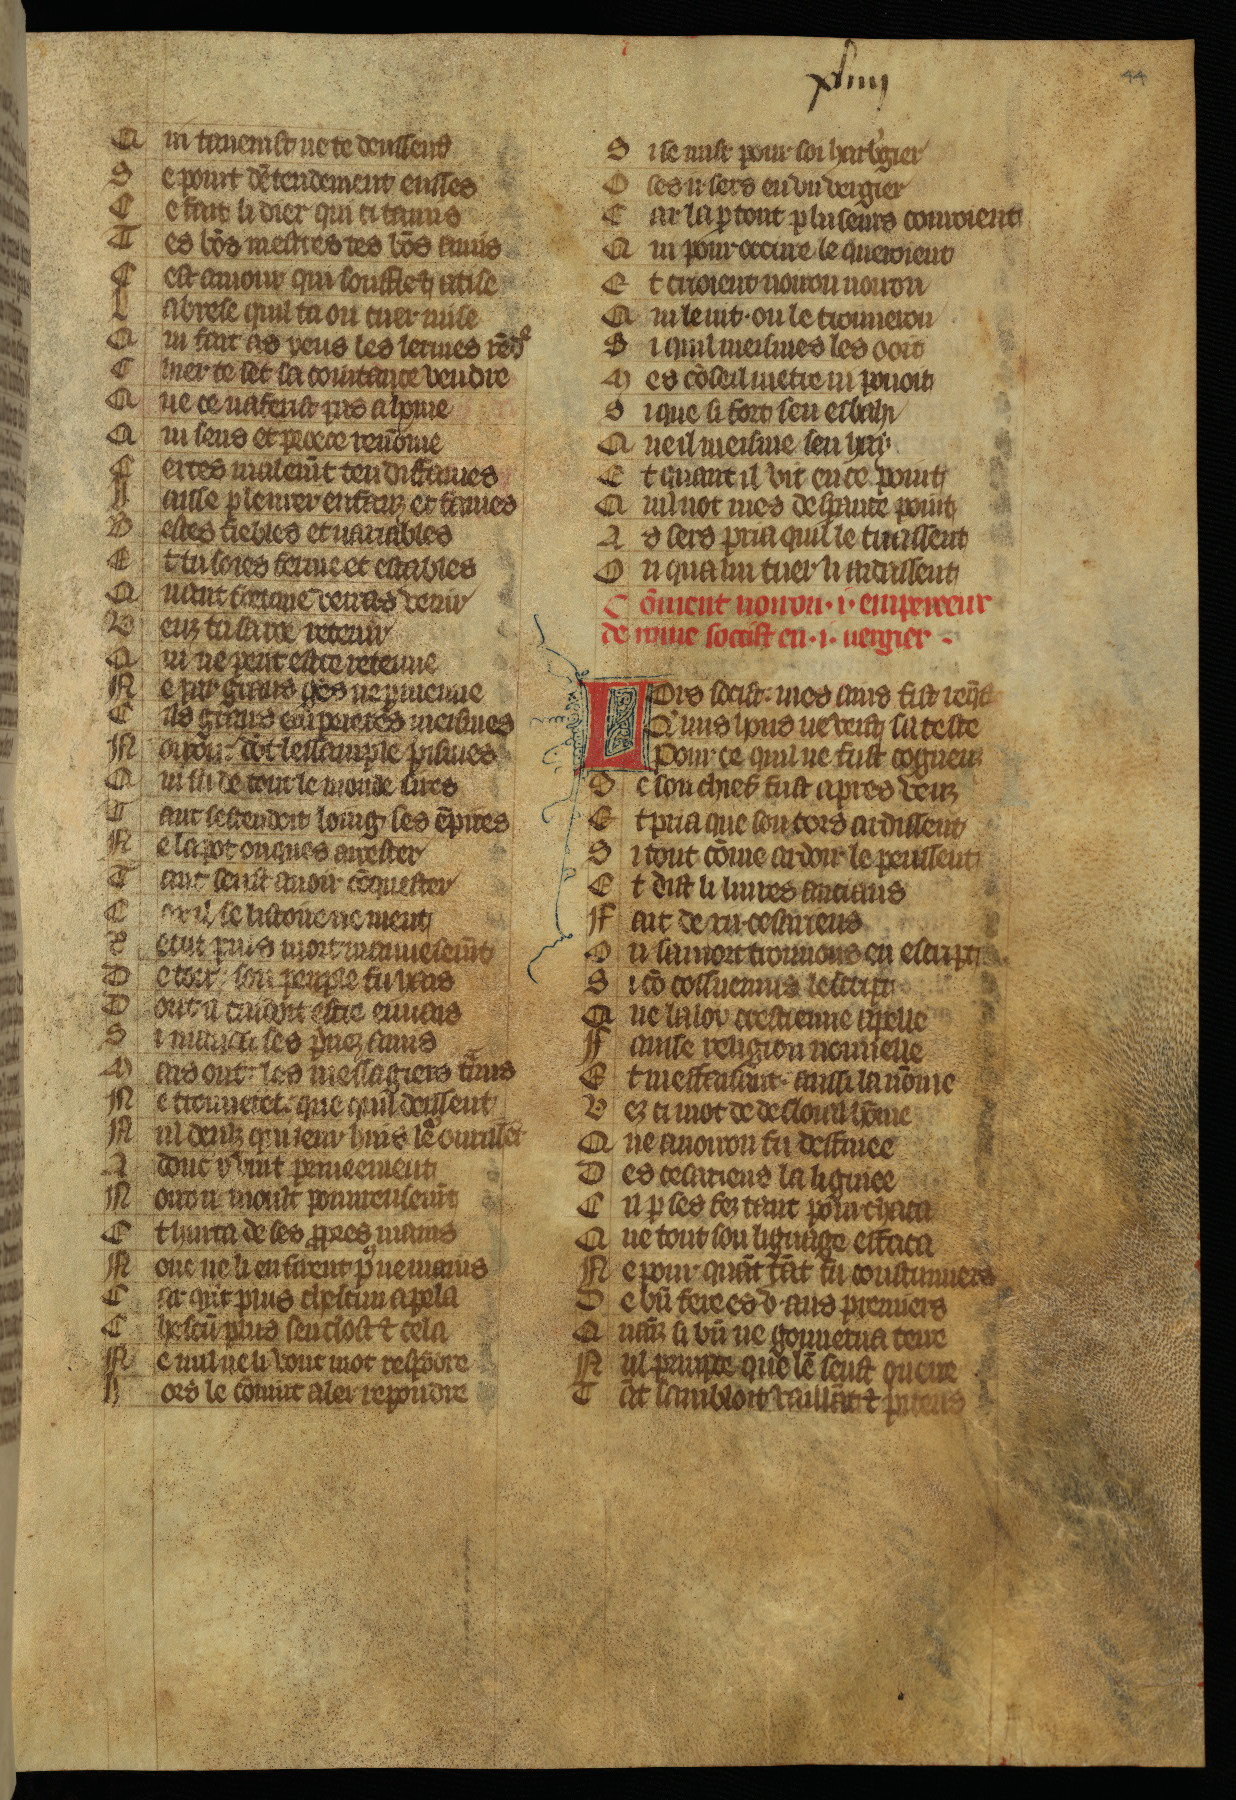 xliiij
44
Q ui tauenist ne te deussent
S e point dētendement eusses
C e fait li dier qui ci tanuis
T es bōs mestres tes bōs amis
C est amour qui souffle & atise
L abrese quil ta ou cuer mise
Q ui fait as yeus les lermes rēdre
C hier te set sa cointance vendre
Q ue ce naferist pas a home
Q ui sens et proece renōme
C ertes malemēt ten diffames
L aisse plourer enfanz et fames
B estes fiebles et uariables
E t tu soies ferme et estables
Q uant fortune verras venir
V euz tu sa roe retenir
Q ui ne peut estre retenue
N e par grans gēs ne p menue
C ils grans empereres meismes
N oiron dōt lessample p̄ismes
Q ui fu de tout le monde sires
T ant sestendoit loing ses ēpires
N e la pot onques arrester
T ant seust anoir cōquester
C ar il se listoire ne ment
R ecut puis mort mauuesemēt
D e tout son peuple fu hais
D ont il cuidoit estre enuais
S i manda ses priuez amis
M ais onc les messagiers trāmis
N e trouueret que quil deissent
N ul deulz qui leur huis lē ouurissēt
A donc vint priueement
N oiron moult poureusemēt
E t hurta de ses ppres mains
N onc ne li en firent p⁹ ne mains
C ar q̄nt plus chescun apela
C hescū plus senclost & cela
N e nul ne li vout mot respōdre
L ors le cōuint aler repondre
S i se mist pour soi herb̄gier
O ses .ii. sers en vn vergier
C ar la p tout pluseurs couroient
Q ui pour occirre le queroient
E t crioient noiron noiron
Q ui le uit. ou le trouueron
S i quil meismes les ooit
M es cōseil metre ni pouoit
S i que si fort sen esbahi
Q ue il meisme sen hai
E t quant il vit en ce point
Q uil not mes desperance point
A s sers pria quil le tuassent
O u qua lui tuer li aidassent
C ōment noiron .i. empereeur
de rome soccist en .i. uergier
L Ors soccist. mes ains fist req̄ste
Q ue ia nus hons ne veist sa teste
Pour ce quil ne fust cogneuz
S e son chief fust apres veuz
E t pria que son cors ardissent
S i tout cōme ardoir le peussent
E t dist li liures anciens
F ait de .xii. cesariens
O u sa mort trouuons en escript
S i cō cossuennus lescript
Q ue la loy crestienne apelle
F ausse religion nouuelle
E t mesfaisāt. ainssi la nōme
V ez ci mot de desloial hōme
Q ue a noiron fu desfinee
D es cesariens la lignee
C il p ses fez tant pourchaca
Q ue tout son lignage effaca
N e pour quāt tāt fu coustumiers
D e biē fere es .v. ans premiers
Q uainz si biē ne gouuerna terre
N ul prince que lē seust querre
T āt sambloit vaillāt & piteus